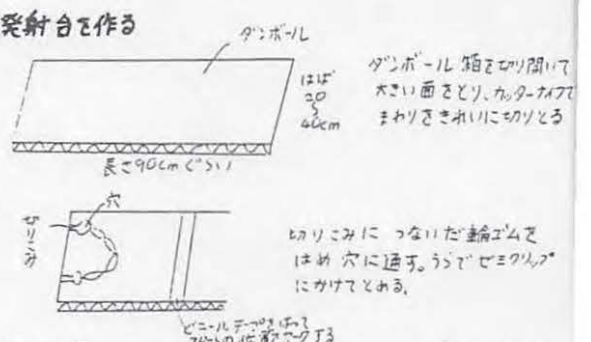 発射台を作る
ダンボール
はば
20
〜
40cm
長さ90cmぐらい
ダンボール箱を切り開いて
大きい面をとり、カッターナイフで
まわりをきれいに切りとる
穴
切りこみ
切りこみに つないだ輪ゴムを
はめ 穴に通す。うらでゼミクリップ
にかけてとめる。
ビニールテープをはって
スタートの位置をマークする